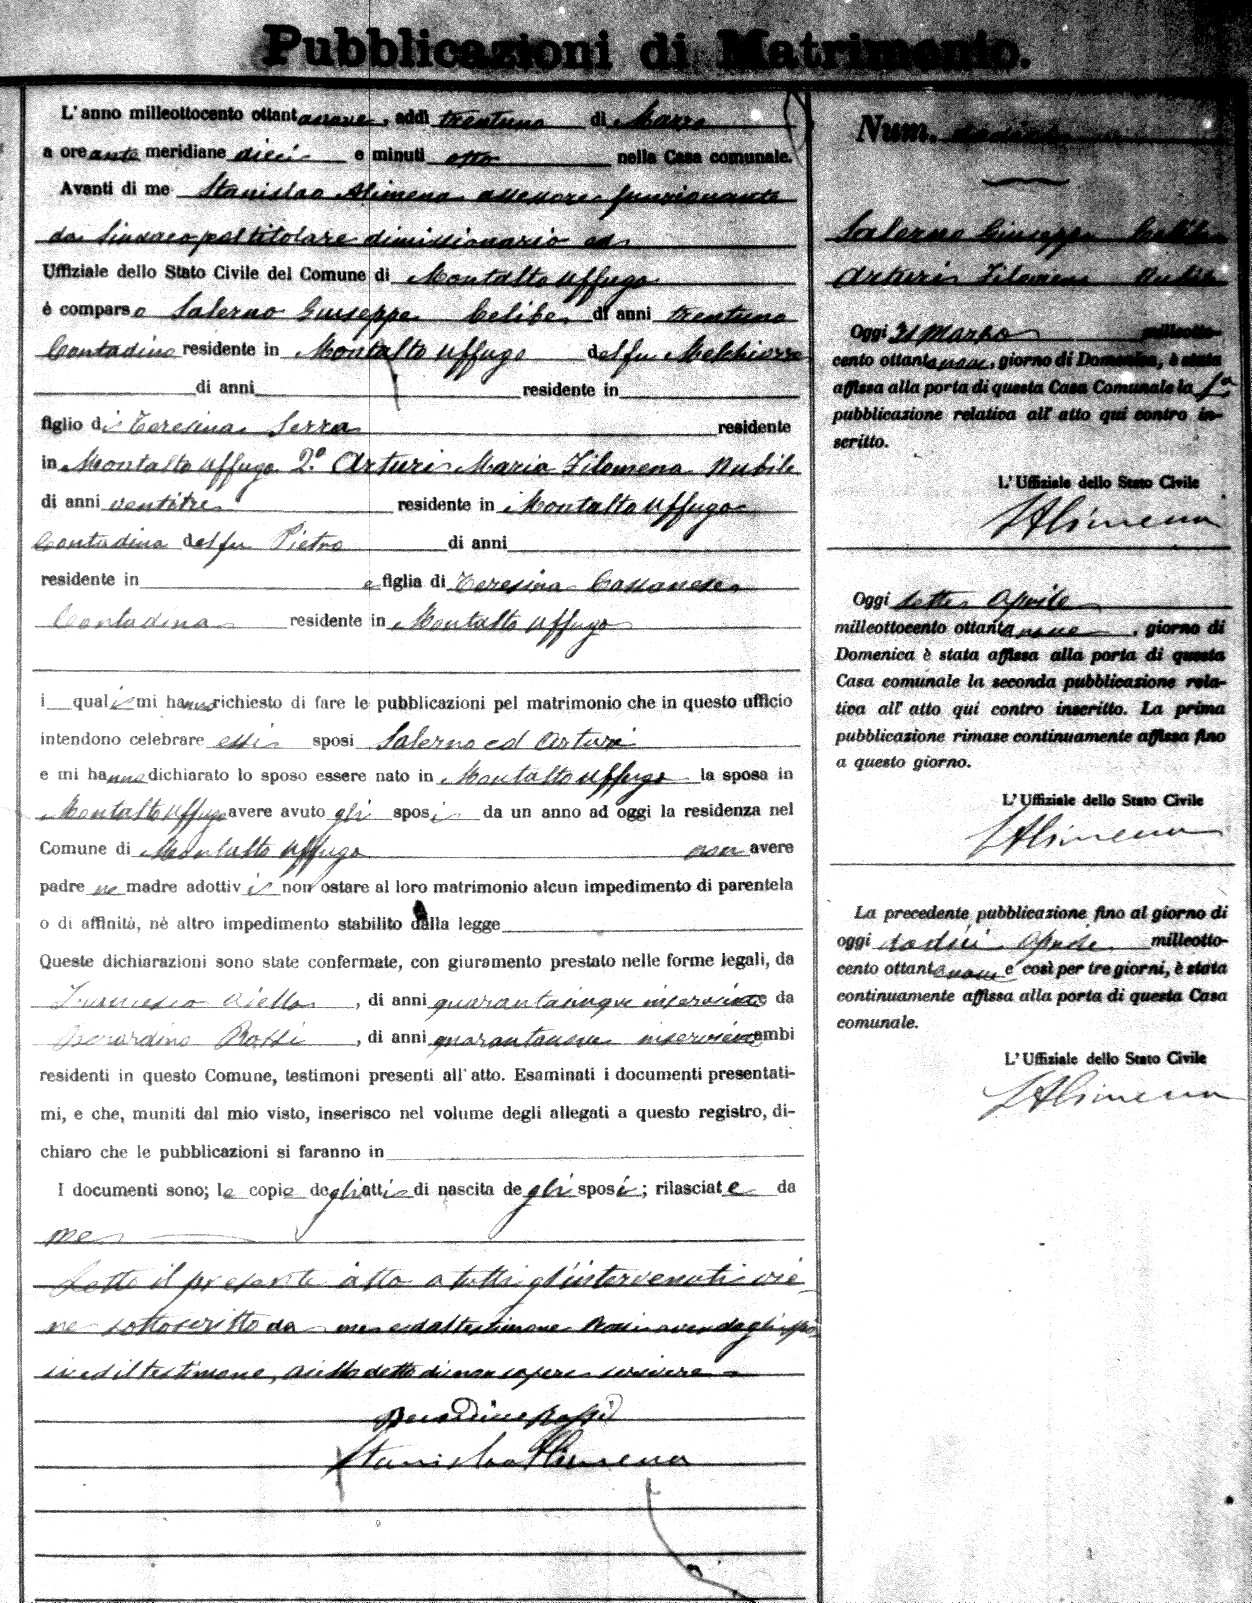 Pubblicazioni di Matrimonio.
L'anno milleottocento ottantanove, addì trentuno di Marzo
a ore ante meridiane dieci e minuti otto nella Casa comunale.
Avanti di me Stanislao Alimena assessore funzionante
da Sindaco pel titolare dimissionario ed
Uffiziale dello Stato Civile del Comune di Montalto Uffugo
è comparso Salerno Giuseppe Celibe di anni trentuno
Contadino residente in Montalto Uffugo del fu Melchiorre
di anni residente in
figlio di Teresina Serra residente
in Montalto Uffugo 2.º Arturi Maria Filomena Nubile
di anni ventitre residente in Montalto Uffugo
Contadina del fu Pietro di anni
residente in e figlia di Teresina Cassanese
Contadina residente in Montalto Uffugo
i quali mi hanno richiesto di fare le pubblicazioni pel matrimonio che in questo ufficio
intendono celebrare essi sposi Salerno ed Arturi
e mi hanno dichiarato lo sposo essere nato in Montalto Uffugo la sposa in
Montalto Uffugo avere avuto gli sposi da un anno ad oggi la residenza nel
Comune di Montalto Uffugo non avere
padre ne madre adottivi non ostare al loro matrimonio alcun impedimento di parentela
o di affinità, nè altro impedimento stabilito dalla legge
Queste dichiarazioni sono state confermate, con giuramento prestato nelle forme legali, da
Francesco Aiello, di anni quarantacinque inserviente da
Berardino Rossi, di anni quarantanove inserviente ambi
residenti in questo Comune, testimoni presenti all'atto. Esaminati i documenti presentati-
mi, e che, muniti dal mio visto, inserisco nel volume degli allegati a questo registro, di-
chiaro che le pubblicazioni si faranno in
I documenti sono; le copie degli atti di nascita degli sposi; rilasciate da
me
Letto il presente atto a tutti gl'intervenuti vie
ne sottoscritto da me e dal testimone Rossi avendo gli spo
si ed il testimone, Aiello detto di non sapere scrivere
Berardino Rossi
Stanislao Alimena
Num. dodici
Salerno Giuseppe Celibe
Arturi Filomena Nubile
Oggi 31 Marzo milleotto-
cento ottantanove, giorno di Domenica, è stata
affissa alla porta di questa Casa Comunale la 1ª
pubblicazione relativa all'atto qui contro in-
scritto.
L'Uffiziale dello Stato Civile
S Alimena
Oggi sette Aprile
milleottocento ottantanove, giorno di
Domenica è stata affissa alla porta di questa
Casa comunale la seconda pubblicazione rela-
tiva all'atto qui contro inscritto. La prima
pubblicazione rimase continuamente affissa fino
a questo giorno.
L'Uffiziale dello Stato Civile
S Alimena
La precedente pubblicazione fino al giorno di
oggi dodici Aprile milleotto-
cento ottantanove e così per tre giorni, è stata
continuamente affissa alla porta di questa Casa
comunale.
L'Uffiziale dello Stato Civile
S Alimena